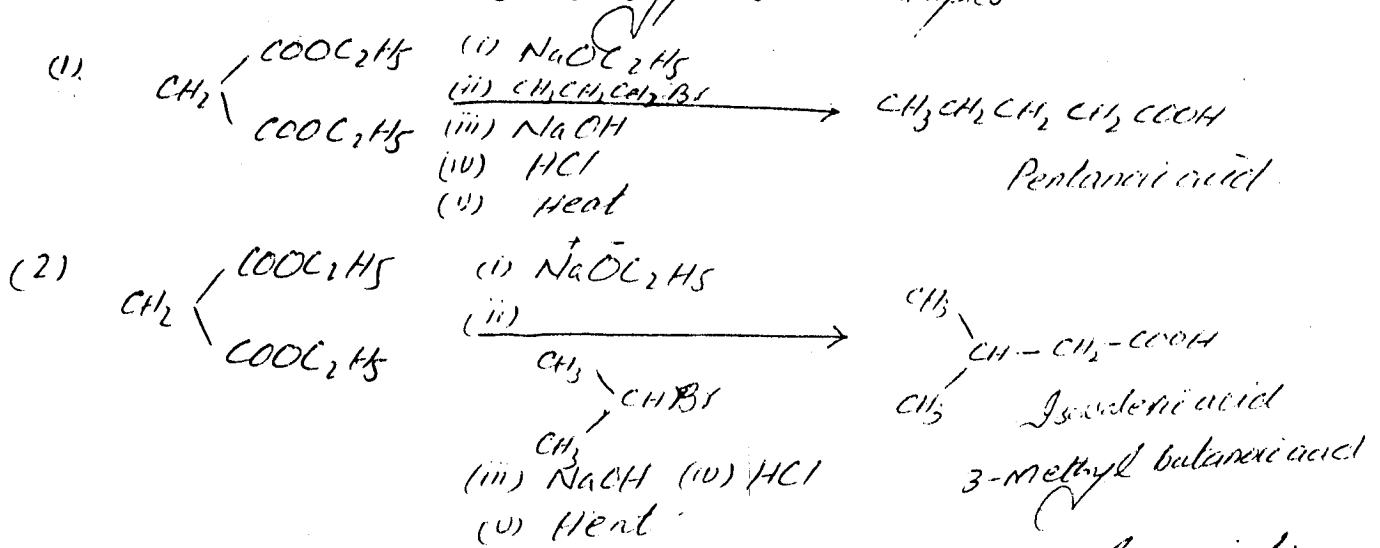 (1) CH2 COOC2H5 COOC2H5
(i) NaOC2H5
(ii) CH3CH2CH2Br
(iii) NaOH
(iv) HCl
(v) Heat
CH3CH2CH2CH2COOH
Pentanoic acid
(2) CH2 COOC2H5 COOC2H5
(i) Na+O-C2H5
(ii)
CH3
CHBr
CH3
(iii) NaOH (iv) HCl
(v) Heat
CH3
CH-CH2-COOH
CH3
Isovaleric acid
3-Methyl butanoic acid